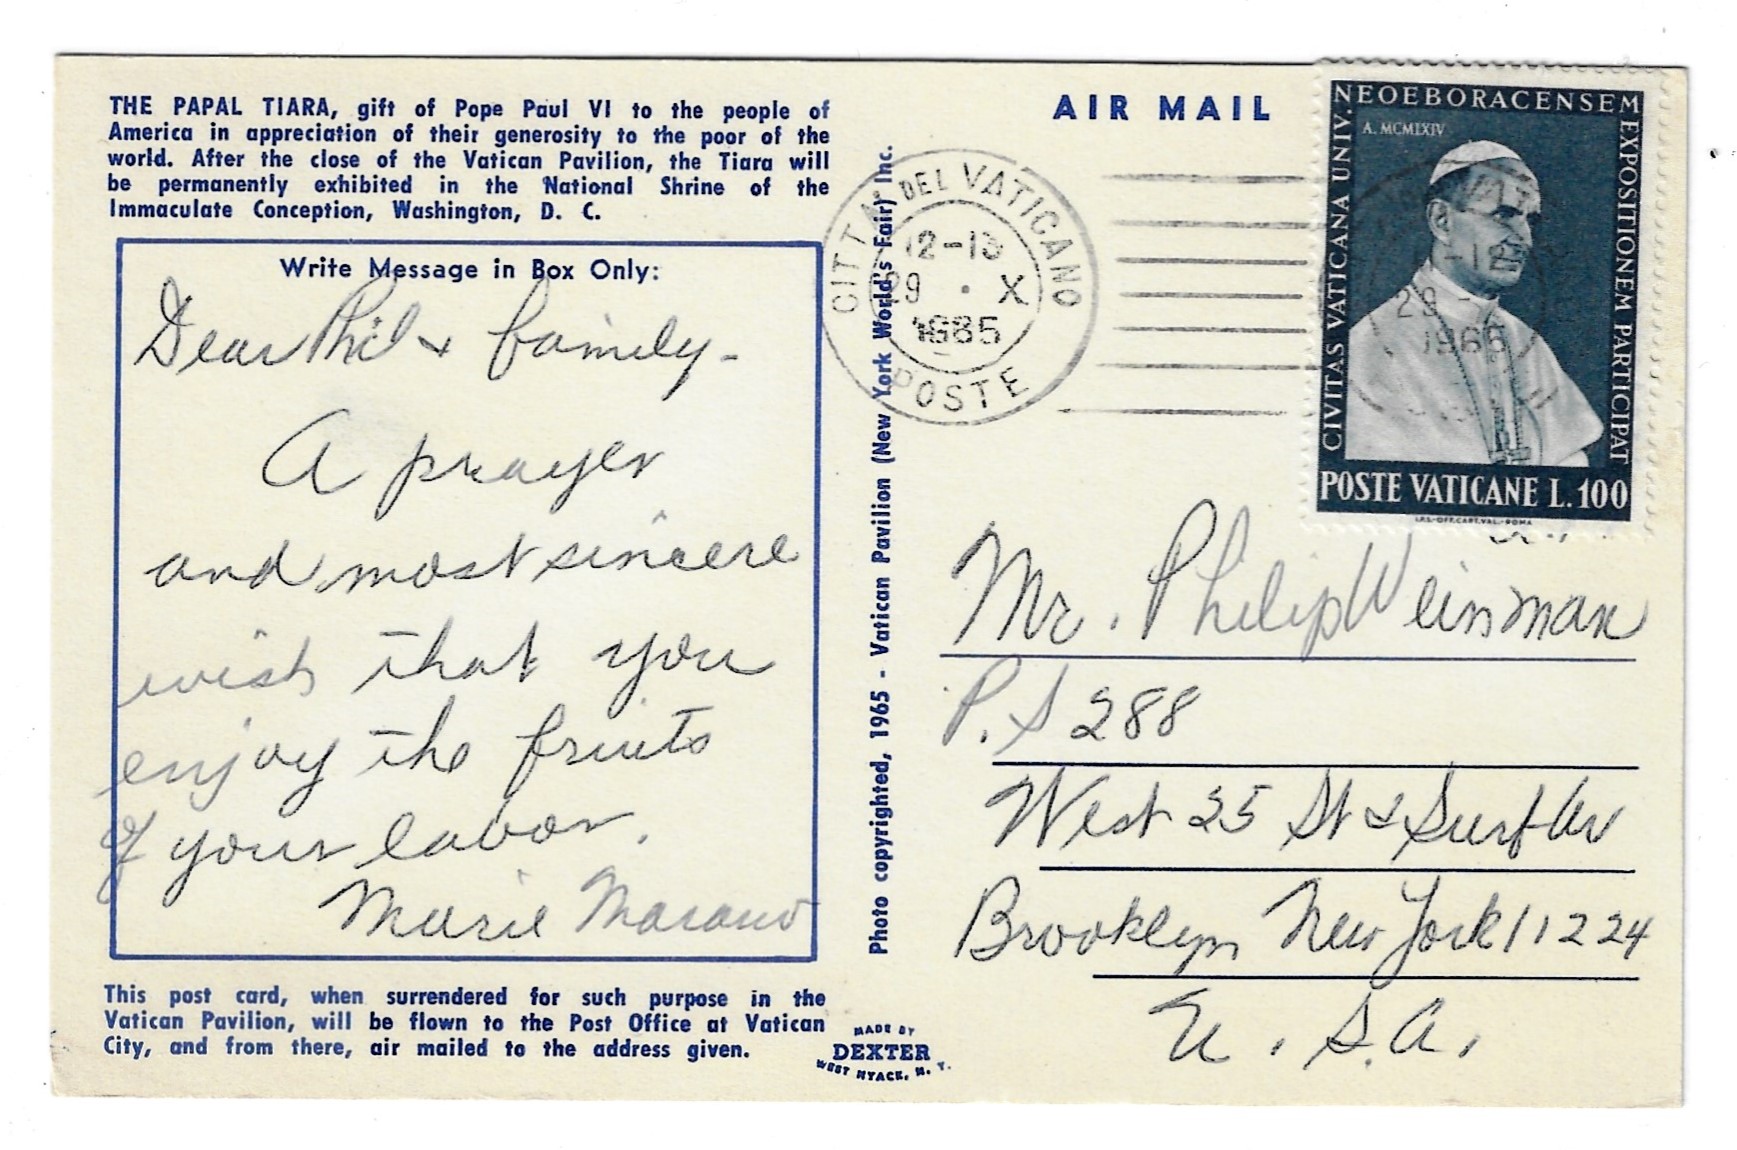 THE PAPAL TIARA, gift of Pope Paul VI to the people of
America in appreciation of their generosity to the poor of the
world. After the close of the Vatican Pavilion, the Tiara will
be permanently exhibited in the National Shrine of the
Immaculate Conception, Washington, D. C.
Write Message in Box Only:
Dear Phil & family -
A prayer
and most sincere
wish that you
enjoy the fruits
of your labor.
Marie Marano
This post card, when surrendered for such purpose in the
Vatican Pavilion, will be flown to the Post Office at Vatican
City, and from there, air mailed to the address given.
MADE BY
DEXTER
WEST NYACK, N. Y.
Photo copyrighted, 1965 - Vatican Pavilion (New York World's Fair) Inc.
AIR MAIL
CITTA' DEL VATICANO
12-13
29 . X
1965
POSTE
NEOEBORACENSEM
A. MCMLXIV
CIVITAS VATICANA UNIV.
EXPOSITIONEM PARTICIPAT
POSTE VATICANE L.100
I.P.S.-OFF.CART.VAL.-ROMA
29
1965
Mr. Philip Weinman
P.S 288
West 25 St & Surf Av
Brooklyn New York 11224
U.S.A.